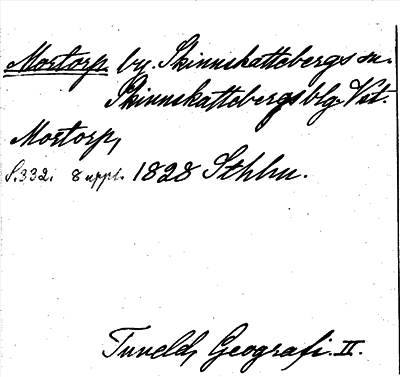 Mostorp by. Skinnskattebergs sn.
Skinnskattebergs blg. Vst.
Mostorp,
S.332. 8 uppl. 1828 Sthlm.
Tuneld, Geografi. II.